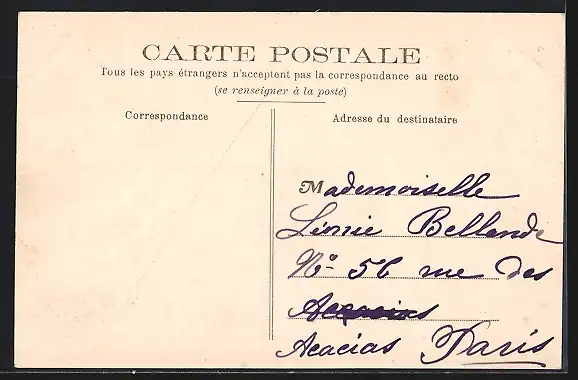 CARTE POSTALE
Tous les pays étrangers n'acceptent pas la correspondance au recto
(se renseigner à la poste)
Correspondance
Adresse du destinataire
Mademoiselle
Léonie Bellende
No 56 rue des
Acacias
Acacias Paris